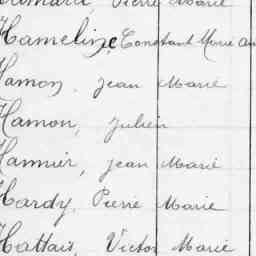 Pierre Marie
Hameline, Constant Marie
Hamon, Jean Marie
Hamon, Julien
Hamier, Jean Marie
Hardy, Pierre Marie
Hattais, Victor Marie